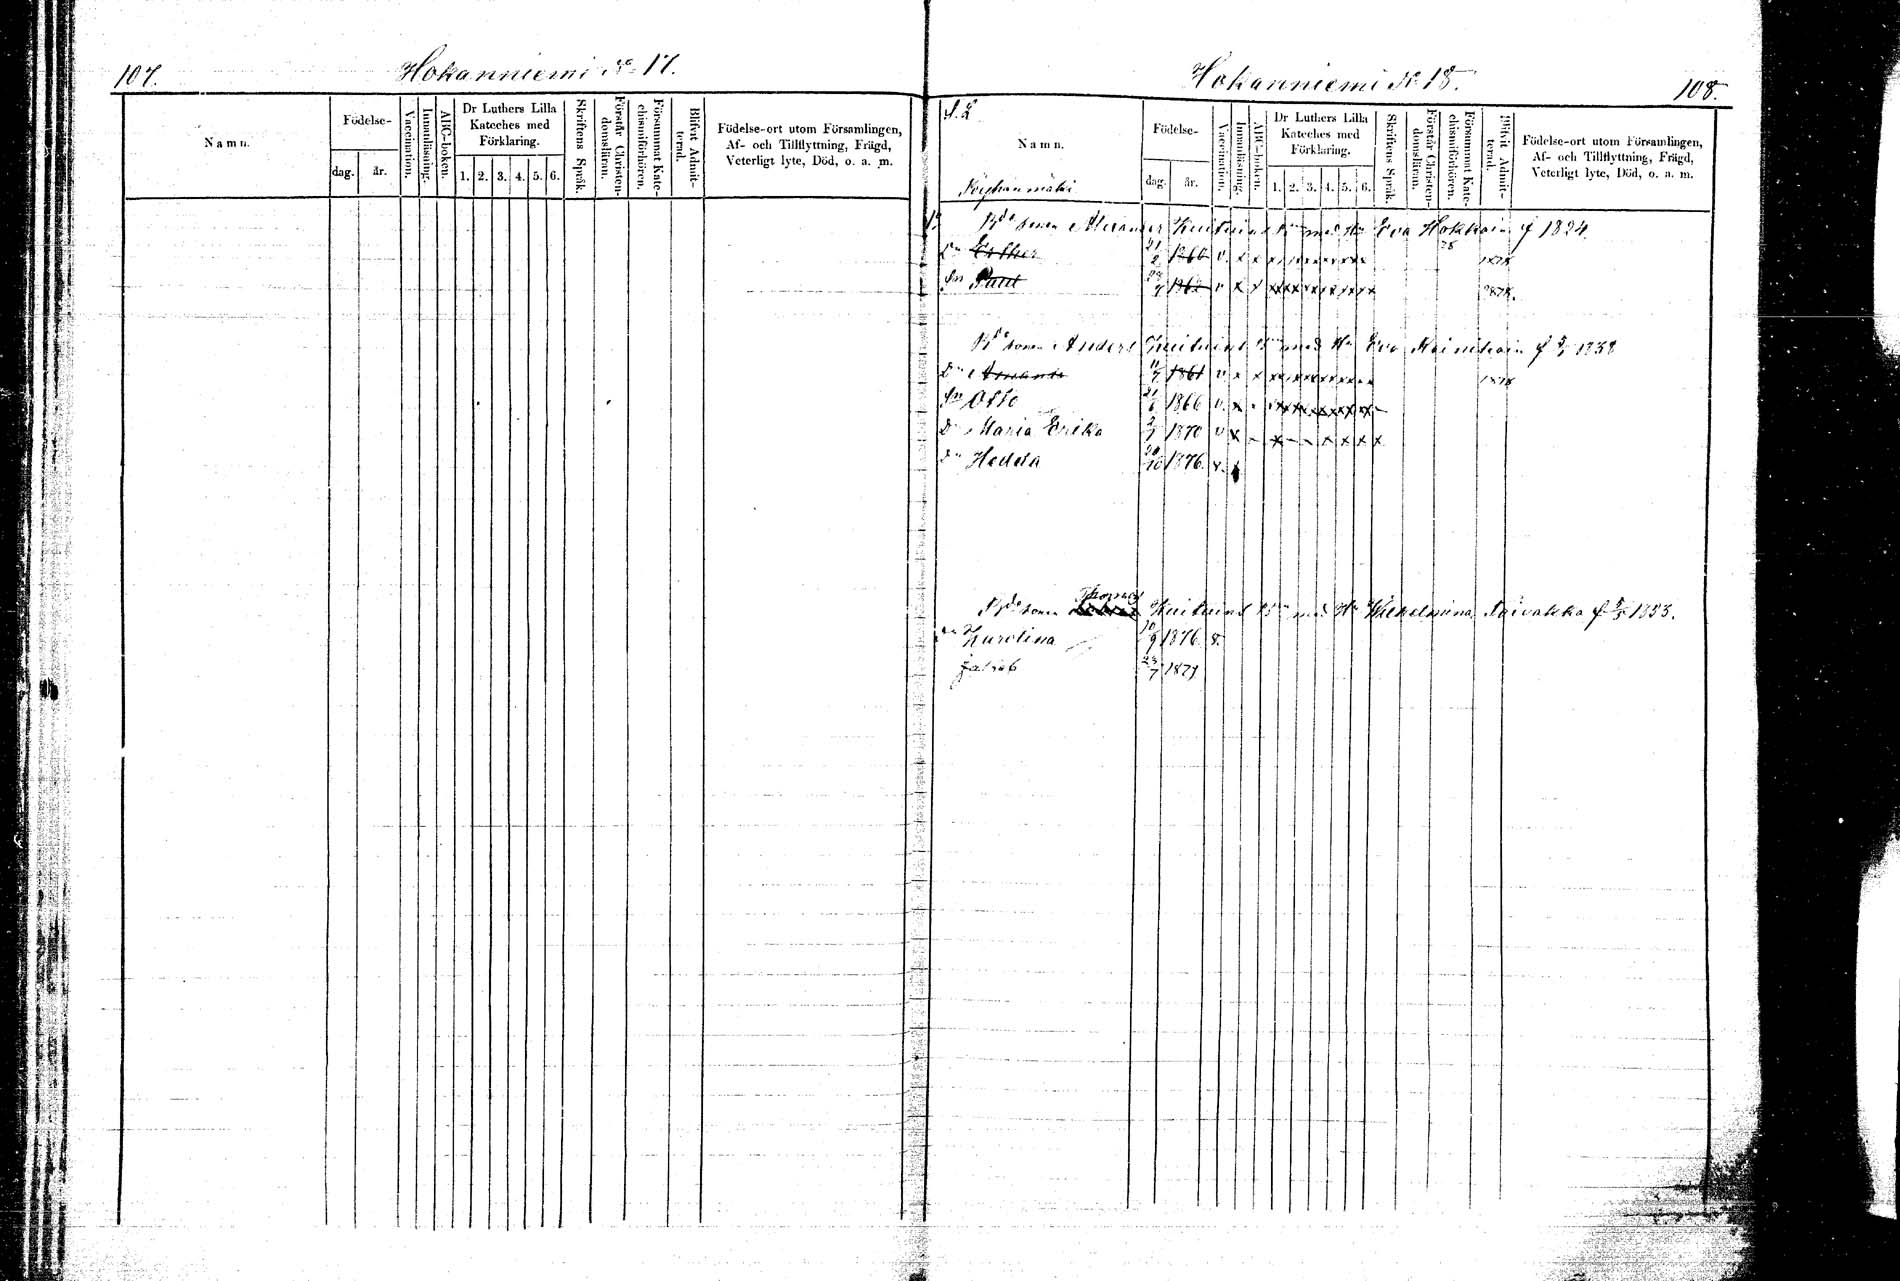 107.
Hokanniemi No 17.
Namn.
Födelse-
dag. år.
Vaccination.
Innanläsning.
ABC-boken.
Dr Luthers Lilla
Kateches med
Förklaring.
1. 2. 3. 4. 5. 6.
Skriftens Språk.
Förstår Christen-
domsläran.
Försummat Kate-
chismiförhören.
Blifvit Admit-
terad.
Födelse-ort utom Församlingen,
Af- och Tillflyttning, Frägd,
Veterligt lyte, Död, o. a. m.
Hokanniemi No 18.
108.
Namn.
Födelse-
dag. år.
Vaccination.
Innanläsning.
ABC-boken.
Dr Luthers Lilla
Kateches med
Förklaring.
1. 2. 3. 4. 5. 6.
Skriftens Språk.
Förstår Christen-
domsläran.
Försummat Kate-
chismiförhören.
Blifvit Admit-
terad.
Födelse-ort utom Församlingen,
Af- och Tillflyttning, Frägd,
Veterligt lyte, Död, o. a. m.
Bde sonen Alexander Kuituin med Hu Eva Hokkain f 1824.
Dr Esther 1860 v. x x 1878
Sn Paul 1862 v x x 1878.
Bde sonen Anders Kuituin med Hu Eva f 1838
Dr Amanda 11/7 1861 v x x 1878
Sn Otto 21/6 1866 v. x
Dr Maria Erika 1870 v x
Dr Hedda 20/10 1876 v.
Bde sonen Thomas Kuituin med Hu Wilhelmina Taivalkka f 1853.
Dr Karolina 10/9 1876 v.
Jakob 23/7 1879